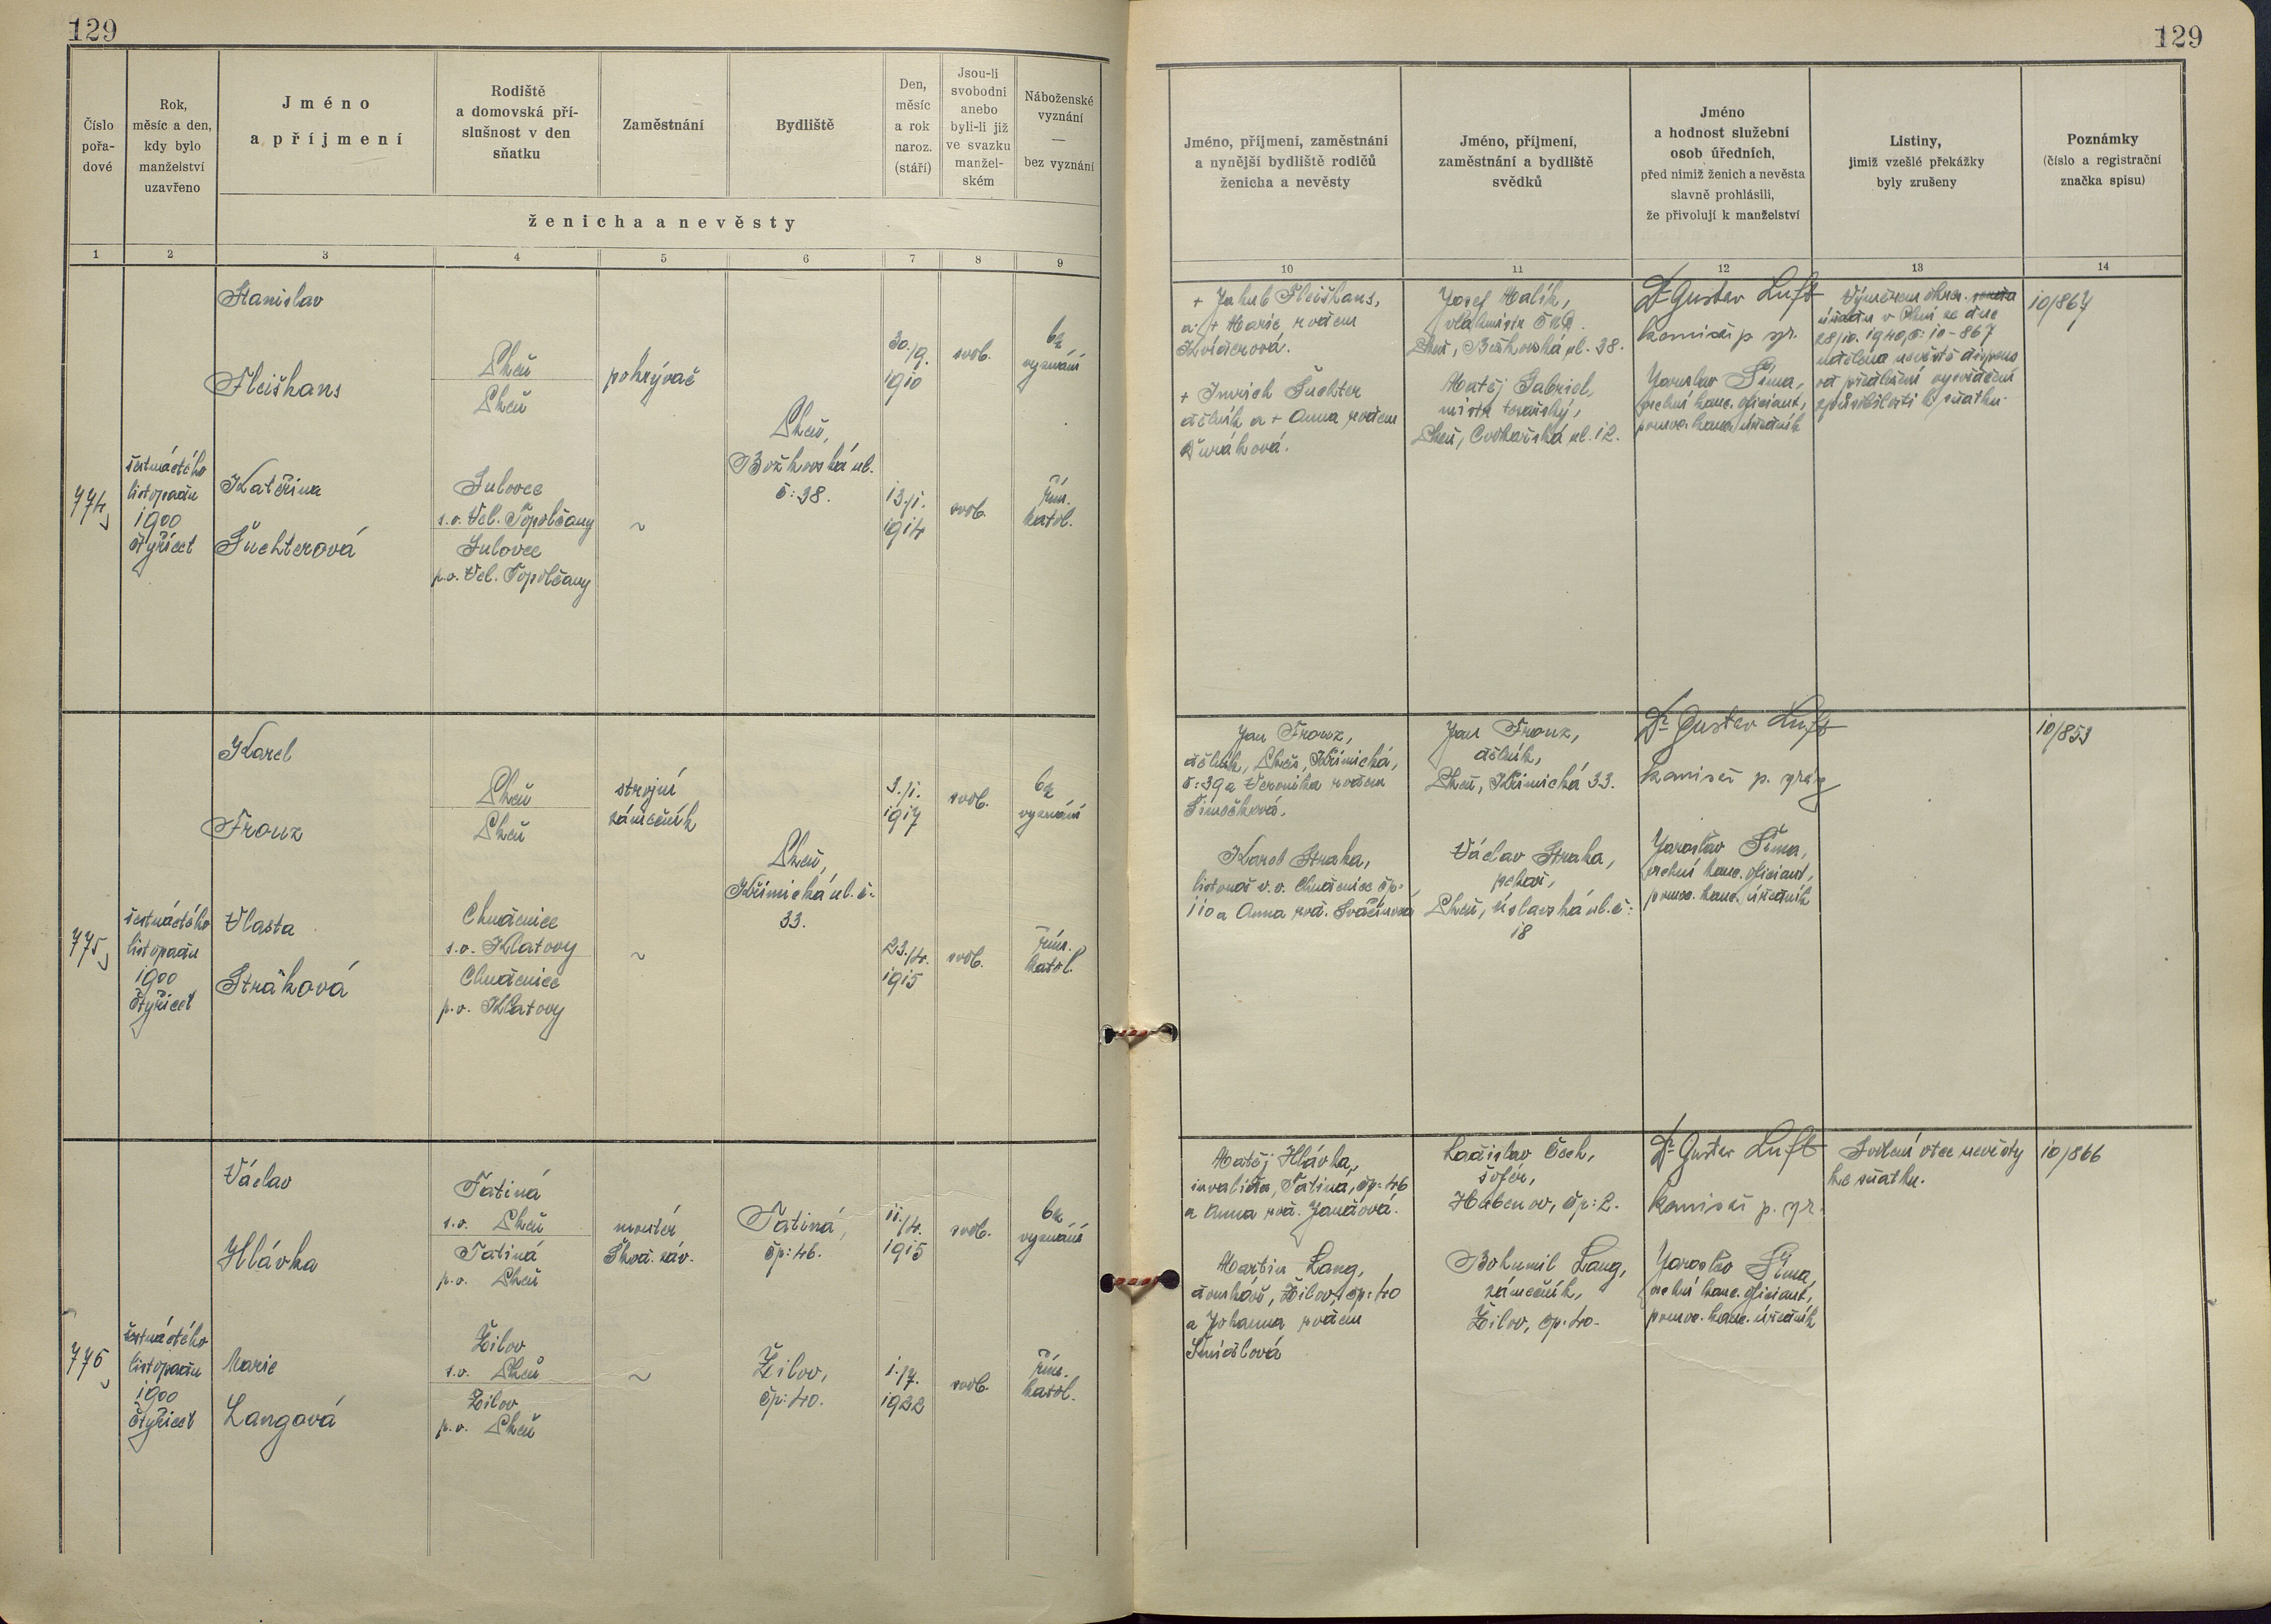 129
129
Číslo
pořa-
dové
Rok,
měsíc a den,
kdy bylo
manželství
uzavřeno
Jméno
a příjmení
Rodiště
a domovská pří-
slušnost v den
sňatku
Zaměstnání
Bydliště
Den,
měsíc
a rok
naroz.
(stáří)
Jsou-li
svobodni
anebo
byli-li již
ve svazku
manžel-
ském
Náboženské
vyznání
—
bez vyznání
ženicha a nevěsty
Jméno, příjmení, zaměstnání
a nynější bydliště rodičů
ženicha a nevěsty
Jméno, příjmení,
zaměstnání a bydliště
svědků
Jméno
a hodnost služební
osob úředních,
před nimiž ženich a nevěsta
slavně prohlásili,
že přivolují k manželství
Listiny,
jimiž vzešlé překážky
byly zrušeny
Poznámky
(číslo a registrační
značka spisu)
1 2 3 4 5 6 7 8 9
10 11 12 13 14
774
šestnáctého
listopadu
1900
čtyřicet
Stanislav
Fleišhans
Plzeň
Plzeň
pokrývač
30./9.
1910
svob.
bez
vyznání
Plzeň,
Božkovská ul.
č: 38.
Kateřina
Šuchterová
Sulovce
s.o. Vel. Topolčany
Sulovce
p.o. Vel. Topolčany
~
13./1.
1914
svob.
řím.
katol.
+ Jakub Fleišhans,
a + Marie, rodem
+ Imrich Šuchter
dělník a + Anna rodem
Josef Malík,
Plzeň, Božkovská ul. 38.
Matěj Gabriel,
mistr tovární,
Plzeň, Cvokařská ul. 12.
Dr Gustav Luft
komisař p. spr.
Jaroslav Šíma,
vrchní kanc. oficiant,
pomoc. kanc. úředník
Výměrem okres.
úřadu v Plzni ze dne
28/10. 1940, č: 10-867
udělena nevěstě dispens
od předložení vysvědčení
způsobilosti k sňatku.
10/867
775
šestnáctého
listopadu
1900
čtyřicet
Karel
Franz
Plzeň
Plzeň
strojní
zámečník
3./1.
1917
svob.
bez
vyznání
Plzeň,
Křimická ul. č:
33.
Vlasta
Strakova
Chudenice
s.o. Klatovy
Chudenice
p.o. Klatovy
~
23./4.
1915
svob.
řím.
katol.
Jan Franz,
dělník, Plzeň, Křimická,
č: 39 a Veronika rodem
Šimečková.
Karel Straka,
listonoš v.v. Chudenice čp:
110 a Anna roz.
Jan Franz,
dělník,
Plzeň, Křimická 33.
Václav Straka,
pekař,
Plzeň, Úslavská ul. č:
18
Dr Gustav Luft
komisař p. správy
Jaroslav Šíma,
vrchní kanc. oficiant,
pomoc. kanc. úředník
10/853
776
šestnáctého
listopadu
1900
čtyřicet
Václav
Hlávka
Tatiná
s.o. Plzeň
Tatiná
p.o. Plzeň
montér
Škod. záv.
Tatiná,
čp: 46.
11./4.
1915
svob.
bez
vyznání
Marie
Langová
Žilov
s.o. Plzeň
Žilov
p.o. Plzeň
~
Žilov,
čp: 40.
1./7.
1922
svob.
řím.
katol.
Matěj Hlávka,
invalida, Tatina, čp: 46
a Anna rod. Jandová.
Martin Lang,
domkář, Žilov, čp: 40
a Johanna rodem
Ladislav Čech,
šofér,
Hubenov, čp: 2.
Bohumil Lang,
zámečník,
Žilov, čp: 40.
Dr Gustav Luft
komisař p. spr.
Jaroslav Šíma,
vrchní kanc. oficiant,
pomoc. kanc. úředník
Svolení otce nevěsty
ke sňatku.
10/866